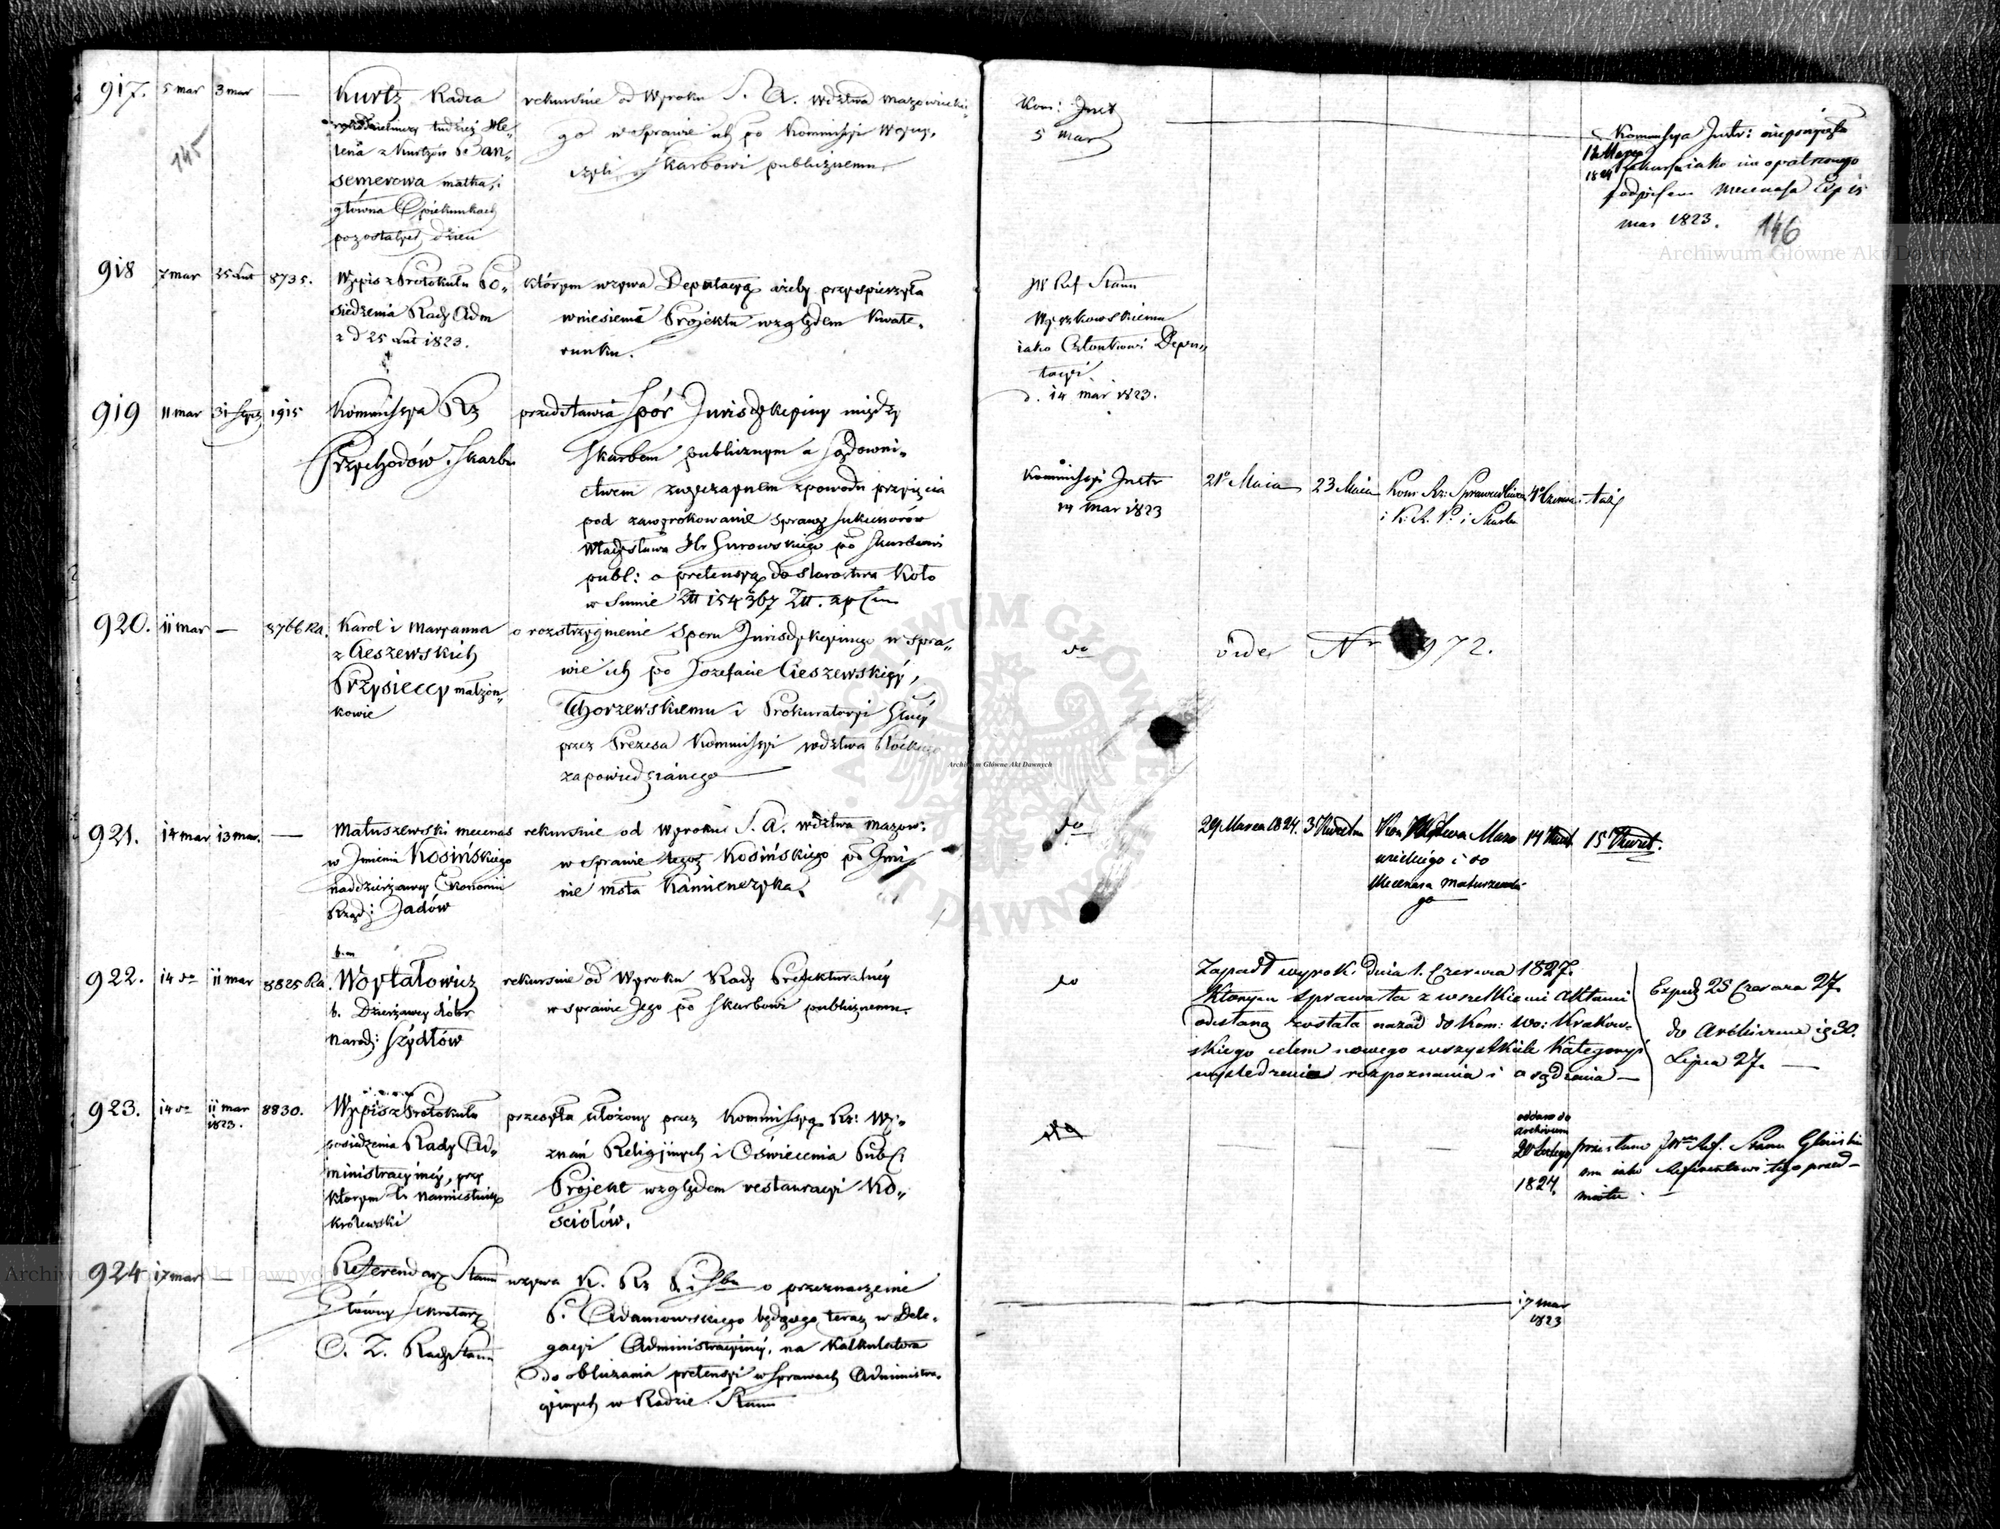 917. 5 mar 3 mar —
Kurtz Radca
tudzież He-
lena z Kurtzów
semerowa matka i
główna Opiekunka
pozostałych dzieci
rekursuie od Wyroku S. A. wdztwa mazowieckie-
go w sprawie ich po Kommissyi Woyew.
czyli Skarbowi publicznemu
Kom: Inst
5 Mar
Kommissya Instr:
12 Marca
1824 iako nieopatrzonego
podpisem Mecenasa
mar 1823.
145
146
918 7 mar 25 Lut 8735.
Wypis z Protokułu Po-
siedzenia Rady Adm
z d 25 Lut 1823.
którym wzywa Deputacyą ażeby przyspieszyła
wniesienie Projektu względem Kwate-
runku.
JW Ref Stanu
Wyczkowskiemu
iako Członkowi Depu-
tacyi
d. 14 mar 1823.
919 11 mar 31 Stycz 1915
Kommissya Rz
Przychodów i Skarbu
przedstawia Spór Jurisdykcyiny między
Skarbem publicznym a Sądowni-
ctwem zwyczaynem z powodu przyięcia
pod zawyrokowanie sprawy sukcessorów
Władysława Hr Gurowskiego po Skarbowi
publ: o pretensyą do starostwa Koło
w Summie Złt 154367 Złt.
Kommissyi Instr
14 Mar 1823
21 Maia 23 Maia Kom Rz: Sprawiedliwości 4 Czerwca
i K. R. P. i Skarbu
920. 11 mar — 8766 Ra.
Karol i Maryanna
z Cieszewskich
Przysieccy małżon-
kowie
o rozstrzygnienie Sporu Jurisdykcyinego w spra-
wie ich po Jozefacie Cieszewskiéy,
Chorzewskiemu i Prokuratoryi
przez Prezesa Kommissyi wdztwa Płockiego
zapowiedzianego
do
vide Nr 972.
921. 14 mar 13 mar. —
Matuszewski mecenas
w Imieniu Kosińskiego
naddzierżawcy Ekonomii
Rząd: Jadów
rekursuie od Wyroku S. A. wdztwa mazow:
w sprawie tegoż Kosińskiego po Gmi-
nie msta Kamienczyka.
do
29 Marca 1824. 3 Kwietnia Kom Wdztwa Mazo 14 Kwiet 15 Kwiet.
wieckiego i do
Mecenasa Matuszewski
go
922. 14 do 11 mar 8825 Ra.
Woytałowicz
b. Dzierżawcy dóbr
Narod: Szydłów
rekursuie od Wyroku Rady Prefekturalnéy
w sprawie Jego po Skarbowi publicznemu.
do
Zapadł wyrok dnia 1. Czerwca 1827.
Którym sprawa ta z wszelkiemi aktami
odesłaną została nazad do Kom: Wo: Krakow-
skiego celem nowego wszystkich Kategoryi
wyśledzenia rozpoznania i osądzenia —
Exped 25 Czerwca 27.
do Archiwum 30.
Lipca 27. —
923. 14 do 11 mar 8830.
1823.
Wypis z Protokułu
posiedzenia Rady Ad-
ministracyinéy, przy
którym Namiestnik
Królewski
przesyła ułożony przez Kommissyą Rz: Wy-
znań Religijnych i Oświecenia Publ
Projekt względem restauracyi Ko-
ściołów.
oddano do
Archiwum
20 Lutego
1824.
przesłano JW Ref. Stanu
iako Referentowi tego przed-
miotu.
924 17 mar — —
Referendarz Stanu
Główny Sekretarz
Rady Stanu
wzywa K. Rz P. i Sbu o przeznaczenie
P. Adamowskiego będącego teraz w Dele-
gacyi Administracyinéy, na Kalkulatora
do obliczania pretensyi w Sprawach Administra-
cyinych w Radzie Stanu
17 mar
1823
Archiwum Główne Akt Dawnych
Archiwum Główne Akt Dawnych
Archiwum Główne Akt Dawnych
ARCHIWUM GŁÓWNE AKT DAWNYCH